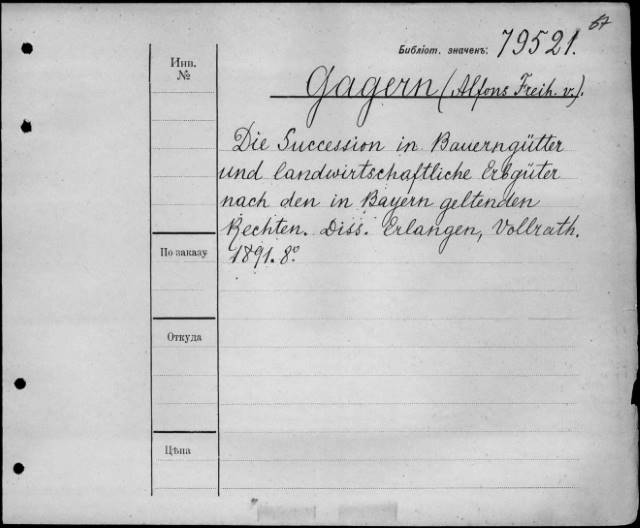 57
Библіот. значенъ: 79521.
Инв.
№
Gagern (Alfons Freih. v.).
Die Succession in Bauerngütter
und landwirtschaftliche Erbgüter
nach den in Bayern geltenden
Rechten. Diss. Erlangen, Vollrath.
1891. 8º
По заказу
Откуда
Цѣна